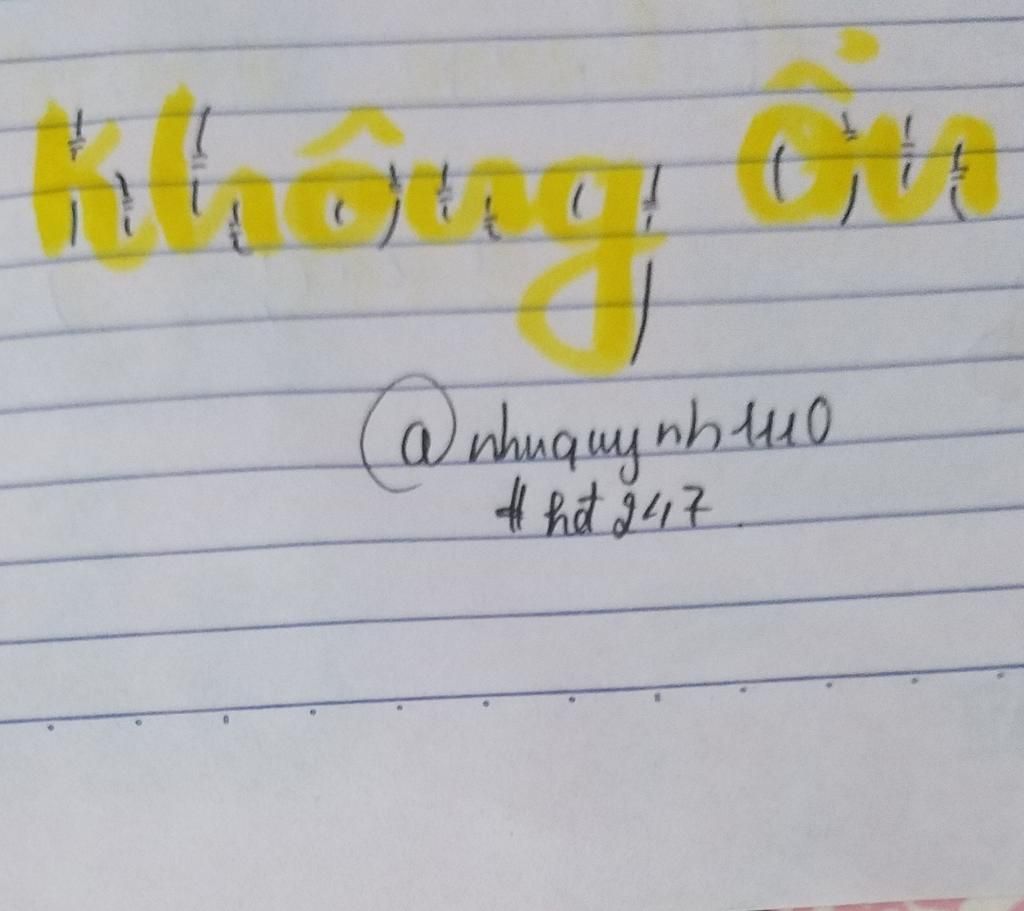 Không ổn
@nhuquynh1110
#hot247